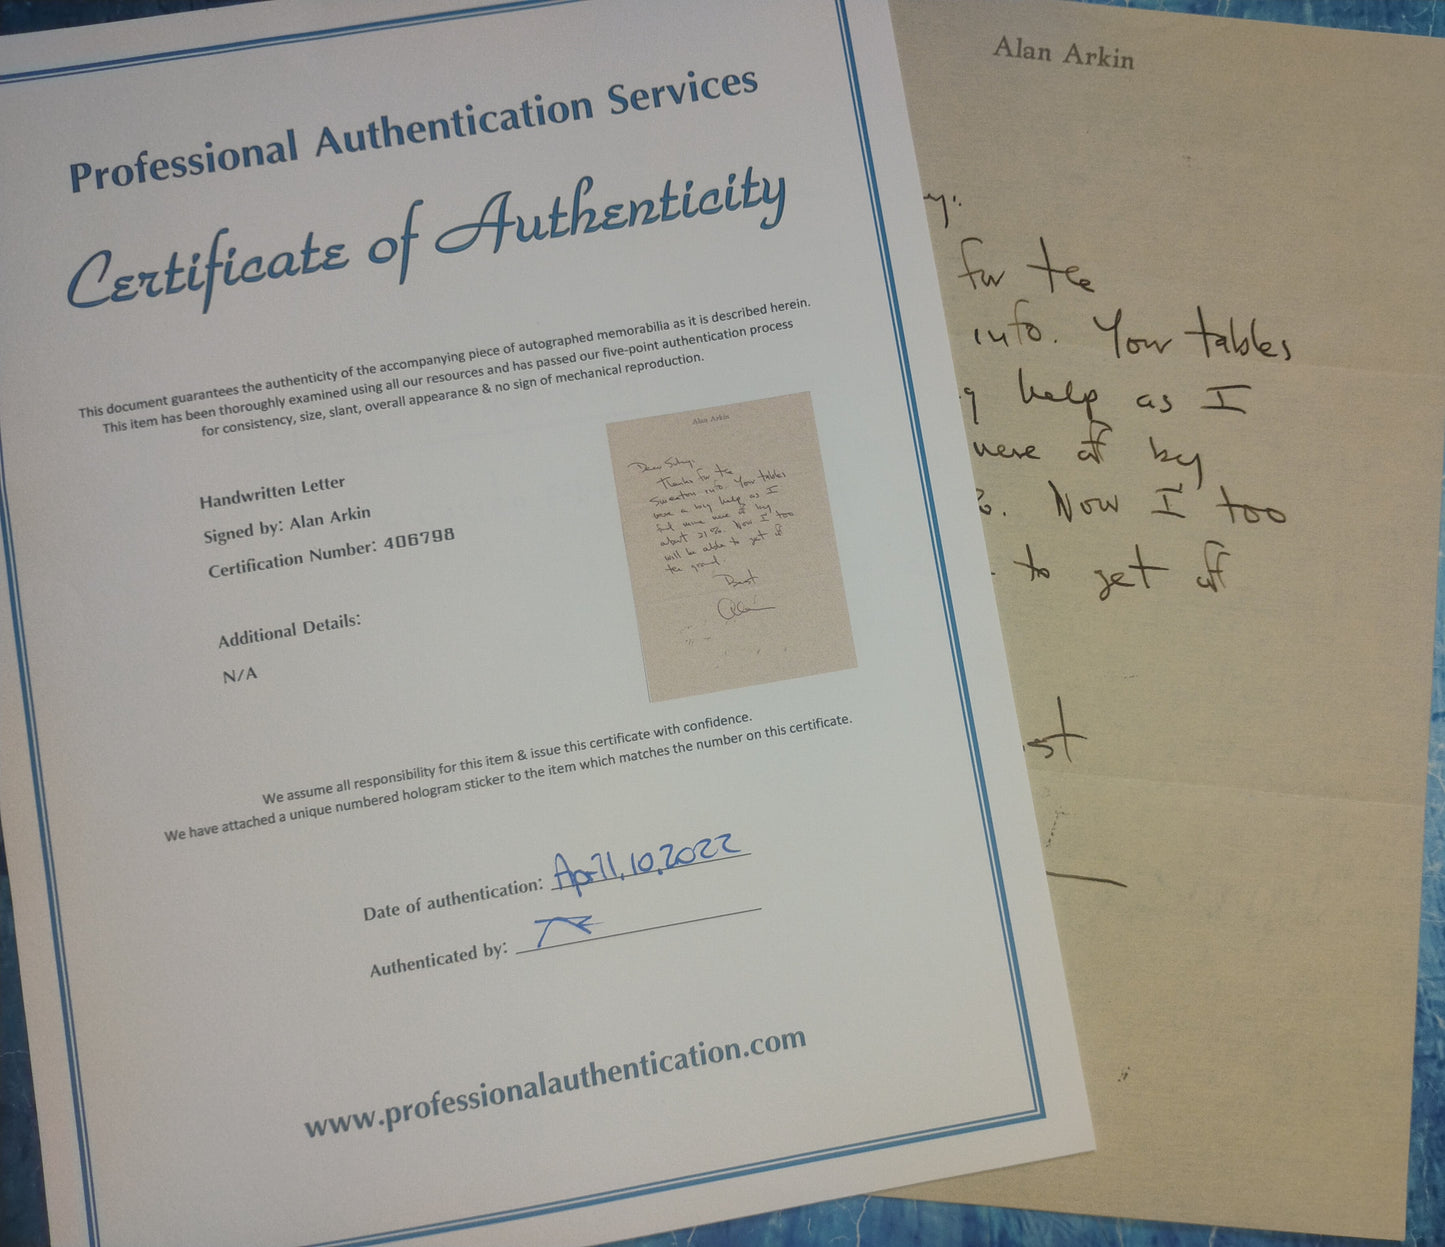 Professional Authentication Services
Certificate of Authenticity
This document guarantees the authenticity of the accompanying piece of autographed memorabilia as it is described herein.
This item has been thoroughly examined using all our resources and has passed our five-point authentication process
for consistency, size, slant, overall appearance & no sign of mechanical reproduction.
Handwritten Letter
Signed by: Alan Arkin
Certification Number: 406798
Additional Details:
N/A
Alan Arkin
Dear
Thanks for the
info. Your tables
were a big help as I
were off by
about 21%. Now I too
will be able to get off
the ground.
Best
Alan
We assume all responsibility for this item & issue this certificate with confidence.
We have attached a unique numbered hologram sticker to the item which matches the number on this certificate.
Date of authentication: April, 10, 2022
Authenticated by:
www.professionalauthentication.com
Alan Arkin
y.
for the
info. Your tables
g help as I
were off by
%. Now I too
to get off
st